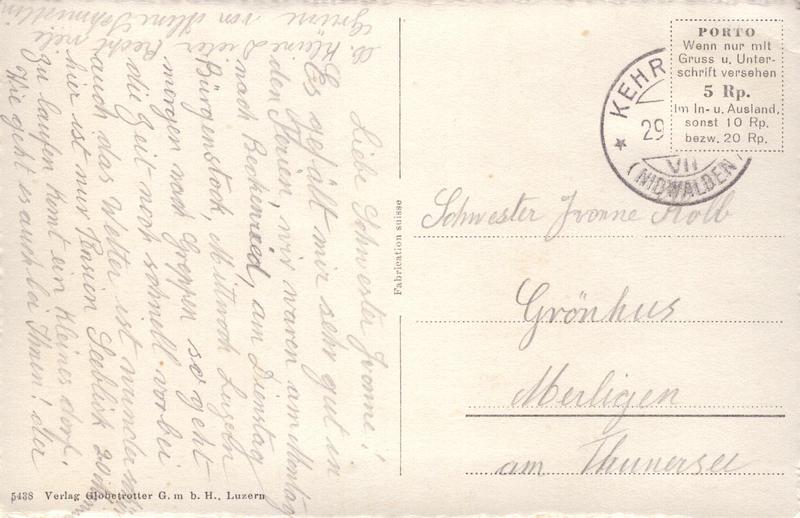 Liebe Schwester Ivonne!
Es gefällt mir sehr gut in
den Ferien, wir waren am Montag
nach Beckenried, am Dienstag
Bürgenstock, Mittwoch Luzern
morgen nach Greppen so geht
die Zeit noch schnell vorbei
auch das Wetter ist
hir ist nur Pension Seeblik 20
zu laufen komt ein kleines dorf.
Wie geht es auch bei Ihnen! der
kleine Dieter Recht viele
Grüsse von Aline
Fabrication suisse
PORTO
Wenn nur mit
Gruss u. Unter-
schrift versehen
5 Rp.
Im In- u. Ausland,
sonst 10 Rp.
bezw. 20 Rp.
KEHR
29
VII
(NIDWALDEN)
Schwester Ivonne Kolb
Grönhus
Merligen
am Thunersee
5438 Verlag Globetrotter G. m b. H., Luzern